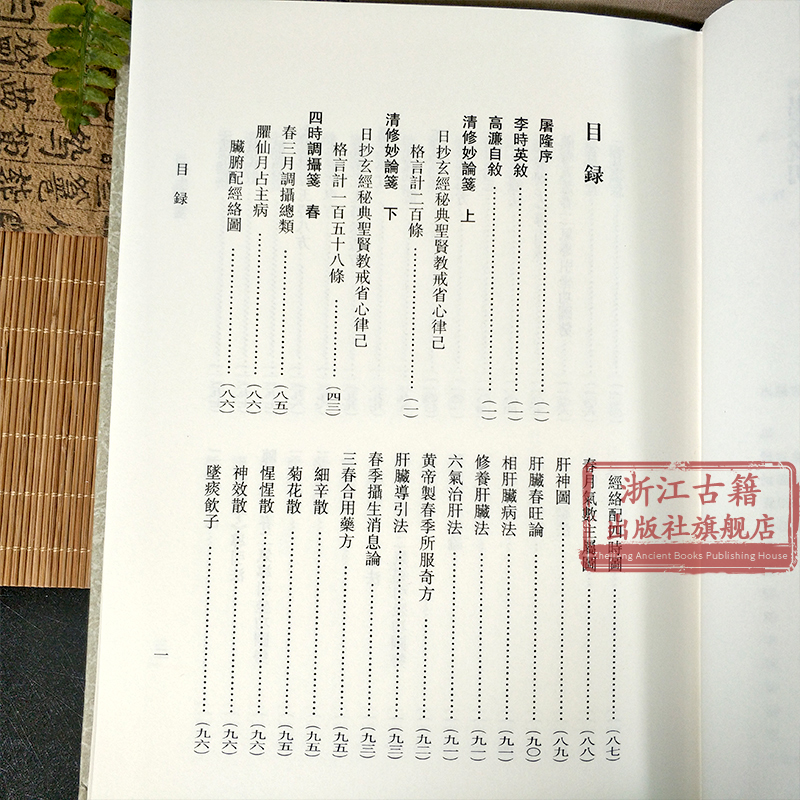 目録
屠隆序……（一）
李時英敘……（一）
高濂自敘……（一）
清修妙論箋 上
日抄玄經秘典聖賢教戒省心律己
格言計二百條……（一）
清修妙論箋 下
日抄玄經秘典聖賢教戒省心律己
格言計一百五十八條……（四三）
四時調攝箋 春
春三月調攝總類……（八五）
臞仙月占主病……（八六）
臟腑配經絡圖……（八六）
經絡配四時圖……（八七）
春月氣數主屬圖……（八八）
肝神圖……（八九）
肝臟春旺論……（九〇）
相肝臟病法……（九一）
修養肝臟法……（九一）
六氣治肝法……（九一）
黄帝製春季所服奇方……（九二）
肝臟導引法……（九三）
春季攝生消息論……（九三）
三春合用藥方……（九五）
細辛散……（九五）
菊花散……（九五）
惺惺散……（九六）
神效散……（九六）
墜痰飲子……（九六）
目録
一
浙江古籍
出版社旗舰店
Zhejiang Ancient Books Publishing House